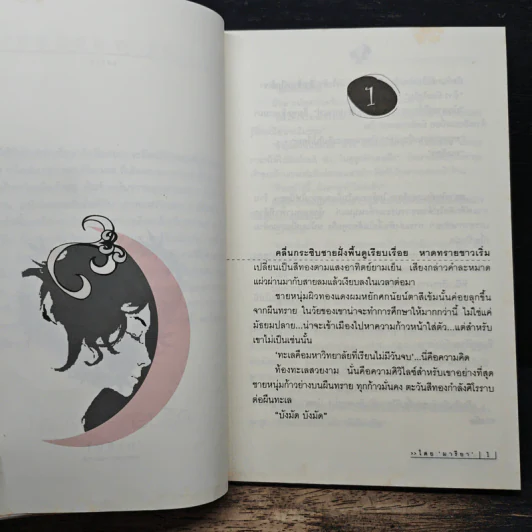 1
คลื่นกระซิบชายฝั่งพื้นดูเรียบเรื่อย หาดทรายขาวเริ่ม
เปลี่ยนเป็นสีทองตามแสงอาทิตย์ยามเย็น เสียงกล่าวคำละหมาด
แผ่วผ่านมากับสายลมแล้วเงียบลงในเวลาต่อมา
ชายหนุ่มผิวทองแดงผมหยักศกนัยน์ตาสีเข้มนั้นค่อยลุกขึ้น
จากผืนทราย ในวัยของเขาน่าจะทำการศึกษาให้มากกว่านี้ ไม่ใช่แค่
มัธยมปลาย...น่าจะเข้าเมืองไปหาความก้าวหน้าใส่ตัว...แต่สำหรับ
เขาไม่เป็นเช่นนั้น
'ทะเลคือมหาวิทยาลัยที่เรียนไม่มีวันจบ'...นี่คือความคิด
ท้องทะเลสวยงาม นั่นคือความศิวิไลซ์สำหรับเขาอย่างที่สุด
ชายหนุ่มก้าวย่างบนผืนทราย ทุกก้าวมั่นคง ตะวันสีทองกำลังศิโรราบ
ต่อผืนทะเล
"บังมัด บังมัด"
>> โดย 'มารียา' | 1 |